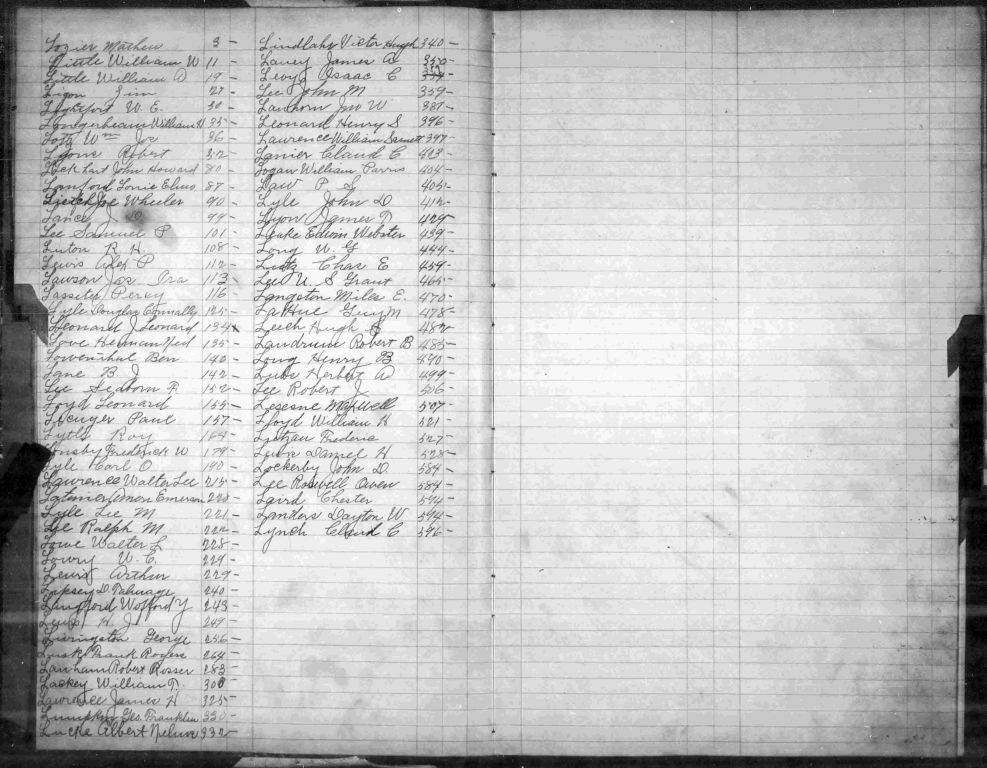 Lozier Mathew 3 -
Little William W 11 -
Little William D 19 -
Lyon Jim 27 -
Lightfoot W. E. 30 -
Longerbeam William H 35 -
Lotz Wm Jos 36 -
Lyons Robert 52 -
Lockhart John Howard 80 -
Lanford Lonie Elmo 87 -
Leitch Joe Wheeler 90 -
Lance J. D. 99 -
Lee Samuel P 101 -
Luton R H 108 -
Lewis Alex P 112 -
Lawson Jos Ira 113 -
Lassiter Percy 116 -
Lyle Douglas Connally 125 -
Leonard J Leonard 134
Love Herman Ned 135 -
Lowenthal Ben 140 -
Lane B J 142 -
Lee Seaborn P. 152 -
Loyd Leonard 155 -
Paul 157 -
Lytle Roy 164 -
Frederick W 179 -
Lyle Carl O 190 -
Lawrence Walter Lee 215 -
Latimer Emerson 220 -
Lyle Lee M 221 -
Lee Ralph M 222 -
Lowe Walter L 228 -
Lowry W. C. 229 -
Lewis Arthur 229 -
Lipsey D. Talmage 240 -
Langford Wofford Y 243 -
H J 249 -
Livingston George 256 -
Lusk Frank Rogers 264 -
Lanham Robert Rosser 283
Lackey William T. 300 -
Lawrence James H 325 -
Lumpkin Geo. Franklin 330 -
Lucke Albert 332 -
Lindlahr Victor Hugh 340 -
James A 350 -
Levy Isaac C
Lee John M 359 -
Lawhorn Jno W 387 -
Leonard Henry S 396 -
Laurence William 397 -
Lanier Claud C 403 -
Logan William Parris 404 -
Law P. S. 405 -
Lyle John D 412 -
Lyon James T. 429 -
Leake Edwin Webster 439 -
Long W. G 444 -
Lutz Chas E 459 -
Lee U. S Grant 465 -
Langston Miles E. 470 -
LaHue Guy M 478 -
Leech Hugh A 482 -
Landrum Robert B 485 -
Long Henry B. 490 -
Herbert A 499 -
Lee Robert J 506 -
Lesesne Maxwell 507 -
Lloyd William H 521 -
Frederic 527 -
Daniel H 528 -
Lockerby John D. 584 -
Lee Roswell Owen 584 -
Laird Chester 594 -
Landers Dayton W. 594 -
Lynch Claud C 596 -